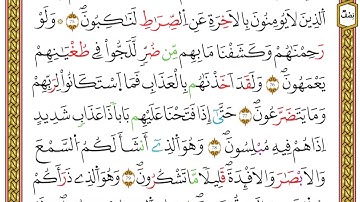 الَّذِينَ لَا يُؤْمِنُونَ بِالْاٰخِرَةِ عَنِ الصِّرَاطِ لَنَاكِبُونَ ﴿٧٤﴾ وَلَوْ
رَحِمْنَاهُمْ وَكَشَفْنَا مَا بِهِمْ مِنْ ضُرٍّ لَلَجُّوا فِى طُغْيَانِهِمْ
يَعْمَهُونَ ﴿٧٥﴾ وَلَقَدْ اَخَذْنَاهُمْ بِالْعَذَابِ فَمَا اسْتَكَانُوا لِرَبِّهِمْ
وَمَا يَتَضَرَّعُونَ ﴿٧٦﴾ حَتّٰٓى اِذَا فَتَحْنَا عَلَيْهِمْ بَابًا ذَا عَذَابٍ شَدِيدٍ
اِذَا هُمْ فِيهِ مُبْلِسُونَ ﴿٧٧﴾ وَهُوَ الَّذِٓى اَنْشَاَ لَكُمُ السَّمْعَ
وَالْاَبْصَارَ وَالْاَفْـِٔدَةَ قَلِيلًا مَا تَشْكُرُونَ ﴿٧٨﴾ وَهُوَ الَّذِى ذَرَاَكُمْ